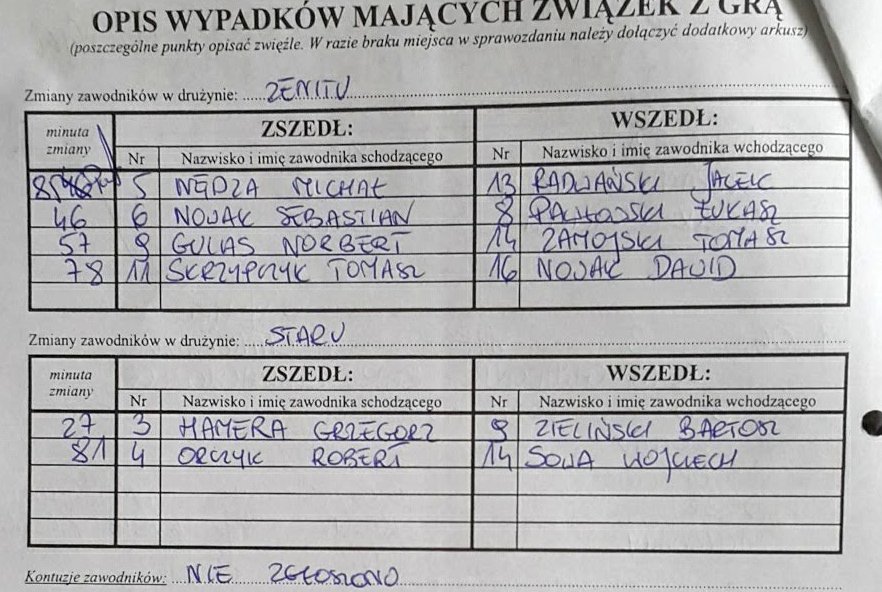 OPIS WYPADKÓW MAJĄCYCH ZWIĄZEK Z GRĄ
(poszczególne punkty opisać zwięźle. W razie braku miejsca w sprawozdaniu należy dołączyć dodatkowy arkusz)
Zmiany zawodników w drużynie: ZENITU
minuta zmiany ZSZEDŁ: WSZEDŁ:
Nr Nazwisko i imię zawodnika schodzącego Nr Nazwisko i imię zawodnika wchodzącego
5 NĘDZA MICHAŁ 13 RADWAŃSKI JACEK
46 6 NOWAK SEBASTIAN 8 ŁUKASZ
57 9 GULAS NORBERT 14 ZAMOJSKI TOMASZ
78 11 SKRZYPCZYK TOMASZ 16 NOWAK DAWID
Zmiany zawodników w drużynie: STARU
minuta zmiany ZSZEDŁ: WSZEDŁ:
Nr Nazwisko i imię zawodnika schodzącego Nr Nazwisko i imię zawodnika wchodzącego
27 3 HAMERA GRZEGORZ 9 ZIELIŃSKI BARTOSZ
81 4 ORCZYK ROBERT 14 SOWA WOJCIECH
Kontuzje zawodników: NIE ZGŁOSZONO